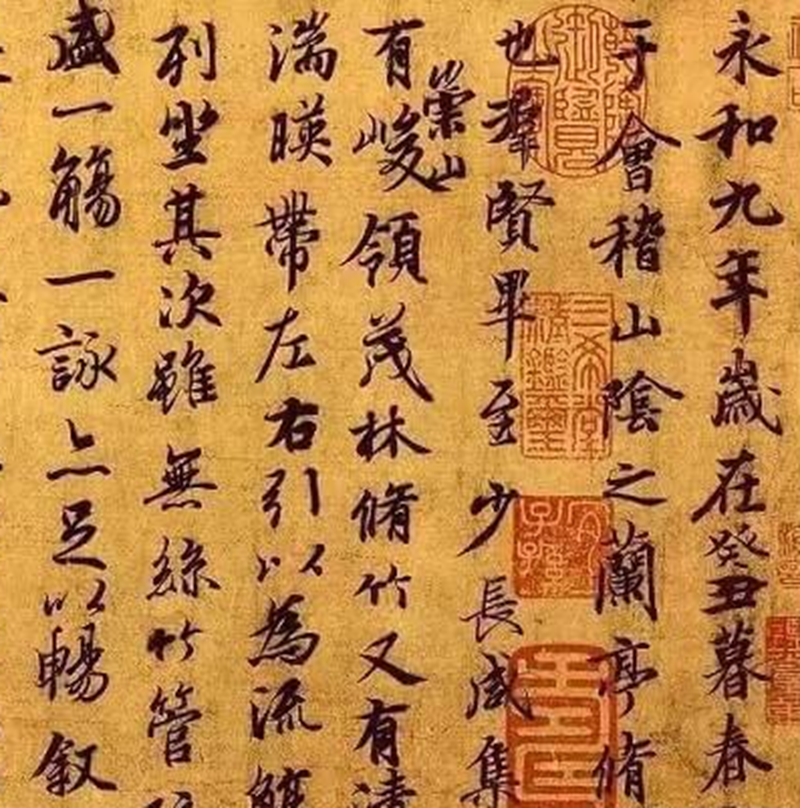 永和九年歲在癸丑暮春
于會稽山陰之蘭亭脩
也羣賢畢至少長咸集
崇山
有峻領茂林脩竹又有清
湍暎帶左右引以為流觴
列坐其次雖無絲竹管
盛一觴一詠亦足以暢叙